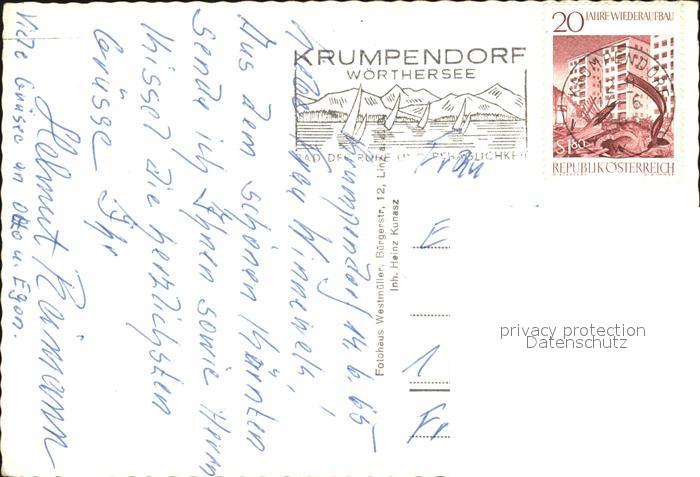 Krumpendorf 14.6.65
Liebe Frau Winneinets,
Aus dem schönen Kärnten
sende ich Ihnen sowie Herrn
Kissel die herzlichsten
Grüsse Ihr
Helmut Raimann
Viele Grüsse an Otto u. Egon.
KRUMPENDORF
WÖRTHERSEE
BAD DER RUHE UND BEHAGLICHKEIT
20 JAHRE WIEDERAUFBAU
KRUMPENDORF
S 1.80
REPUBLIK ÖSTERREICH
Fotohaus Westmüller, Bürgerstr, 12, Linz a.
Inh. Heinz Kunasz
Frau
E
1
Fr
privacy protection
Datenschutz